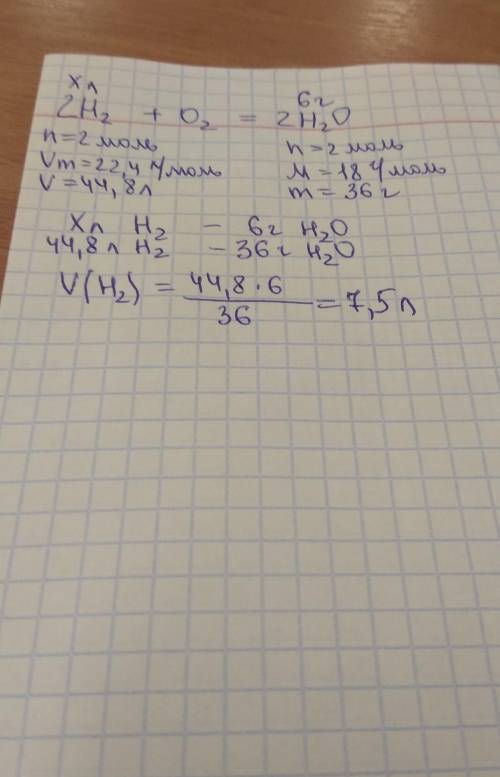 Xл 6г
2H₂ + O₂ = 2H₂O
n=2 моль n=2 моль
Vm=22,4 л/моль M=18 г/моль
V=44,8 л m=36 г
Xл H₂ – 6г H₂O
44,8 л H₂ – 36г H₂O
V(H₂) = 44,8·6 / 36 = 7,5 л